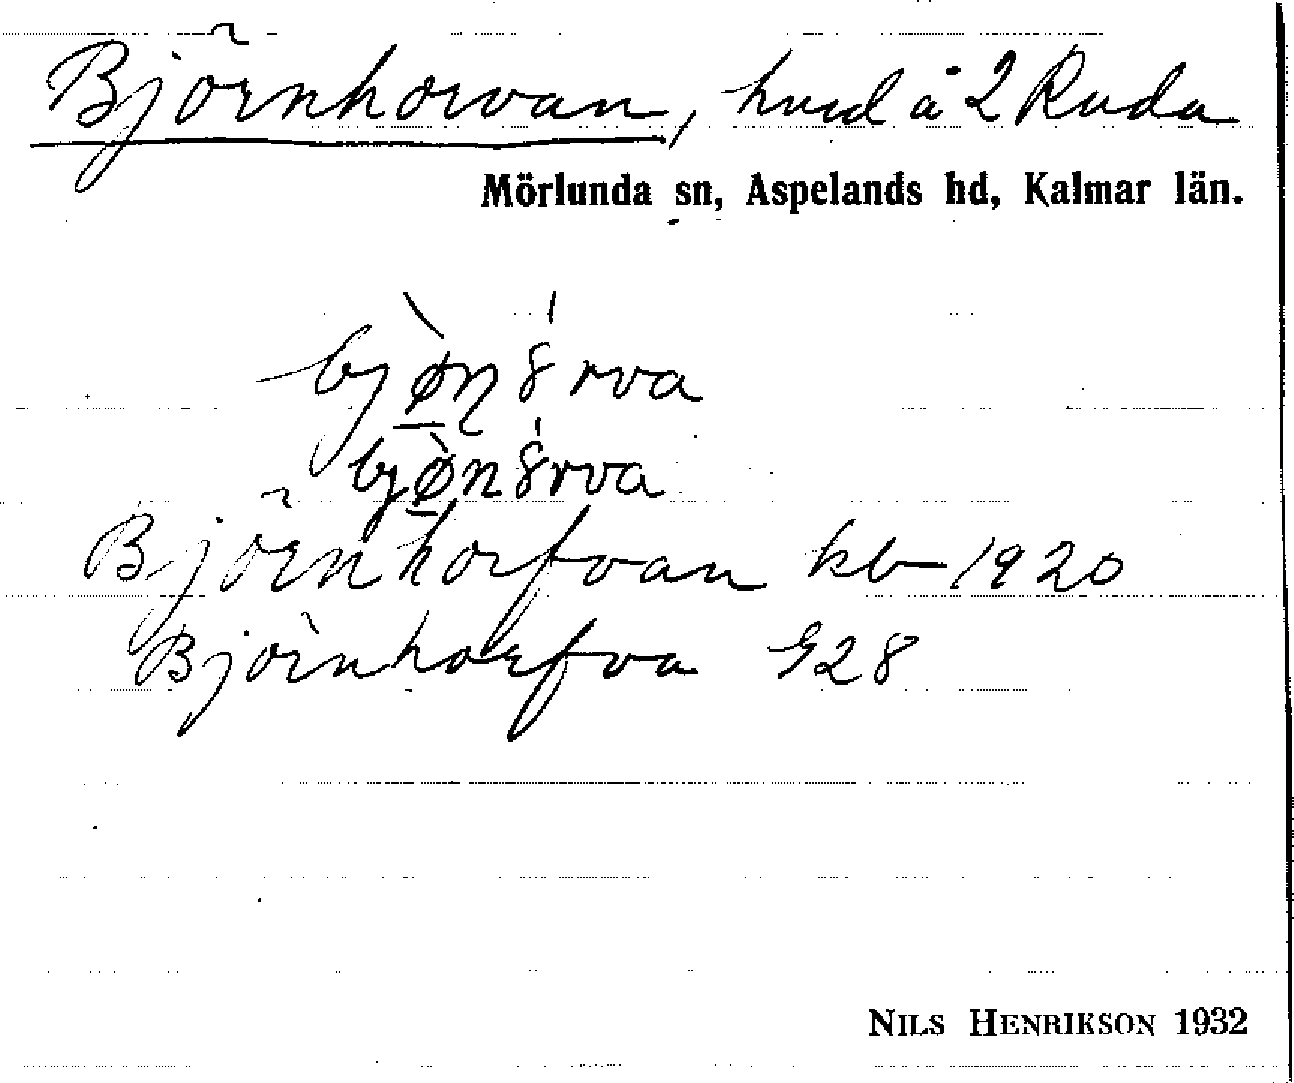 Björnhorvan, hvid å 2 Ruda
Mörlunda sn, Aspelands hd, Kalmar län.
bjø̀ɳ8́rva
bjø̀n8́rva
Björnhorfvan kb 1920
Björnhorfva G28
NILS HENRIKSON 1932